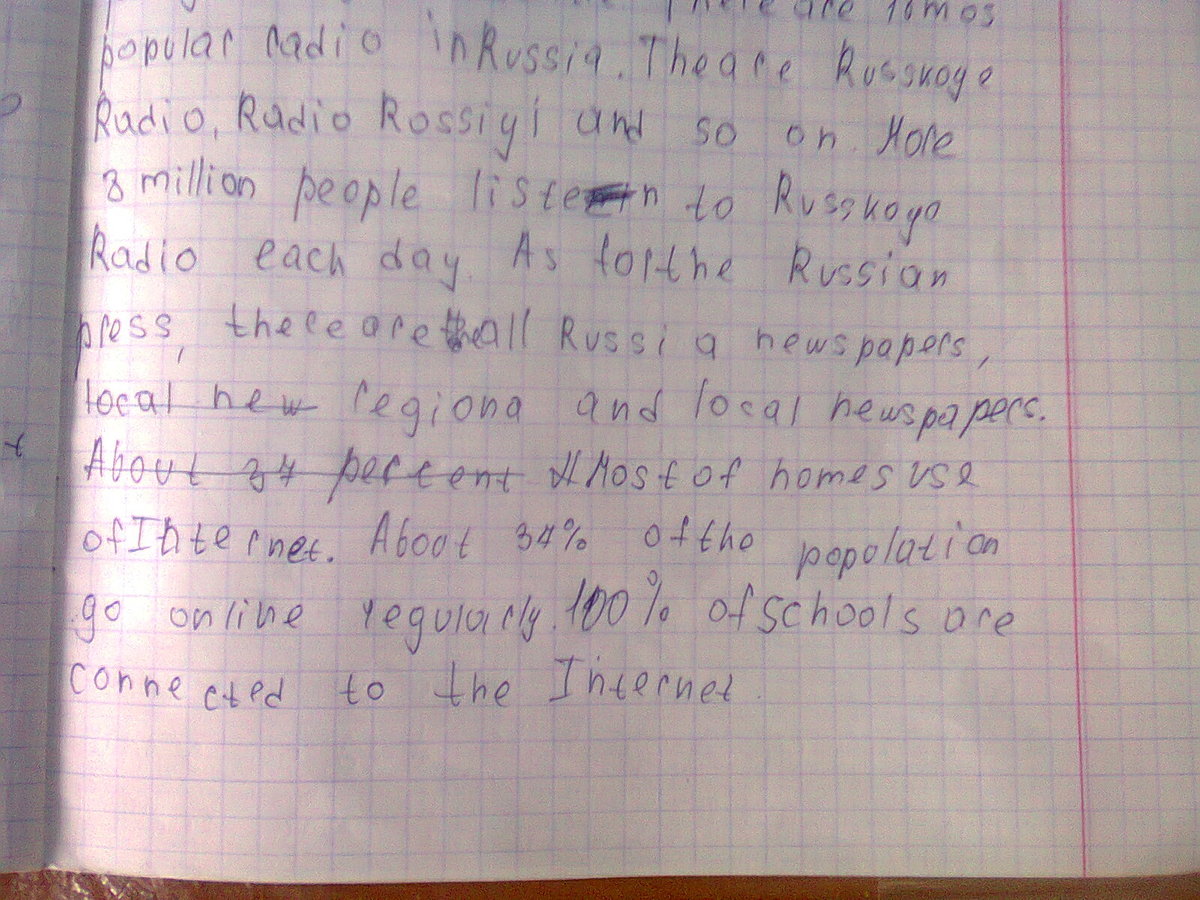 There are 10 mos
popular radio in Russia. The are Russkoye
Radio, Radio Rossiyi and so on. More
8 million people listen to Russkoyo
Radio each day. As for the Russian
press, there are all Russia newspapers,
local new regiona and local newspapers.
About 34 percent Most of homes use
of Internet. About 34% of the popolation
go online regularly. 100% of schools are
connected to the Internet.